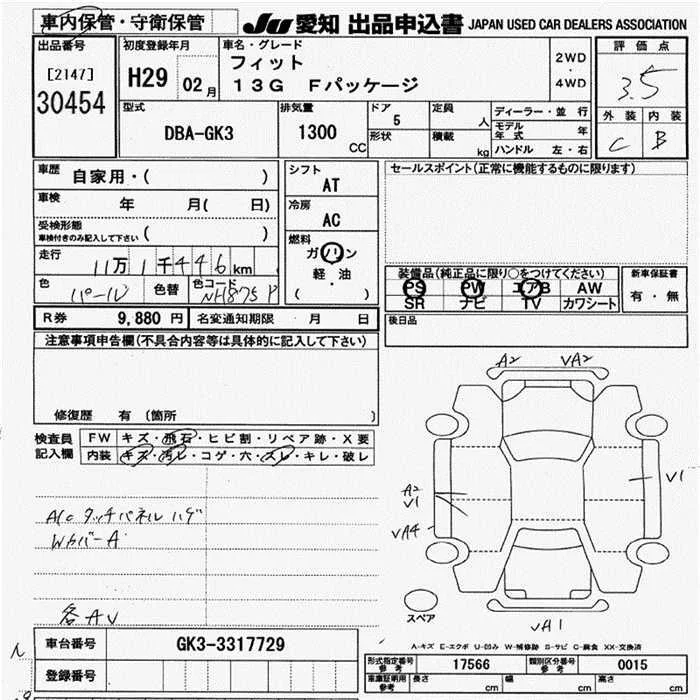 車内保管・守衛保管
JU 愛知 出品申込書 JAPAN USED CAR DEALERS ASSOCIATION
出品番号
[2147]
30454
初度登録年月
H29 02月
車名・グレード
フィット
13G Fパッケージ
2WD
・
4WD
評価点
3.5
外装 内装
C B
型式
DBA-GK3
排気量
1300
CC
ドア
5
形状
定員
人
積載
kg
ディーラー・並行
モデル年式 年
ハンドル 左・右
車歴
自家用・( )
車検
年 月( 日)
受検形態
車検付きのみ記入して下さい ( )
走行
11万1千446km
色
パール
色替
色コード
NH875P
シフト
AT
冷房
AC
燃料
ガソリン
軽・油
( )
セールスポイント(正常に機能するものに限ります)
装備品(純正品に限り○をつけてください)
PS PW エアB AW
SR ナビ TV カワシート
新車保証書
有・無
後日品
R券 9,880 円
名変通知期限 月 日
注意事項申告欄(不具合内容等は具体的に記入して下さい)
修復歴 有 (箇所 )
検査員
記入欄
FW キズ・飛石・ヒビ割・リペア跡・X要
内装 キズ・汚レ・コゲ・穴・スレ・キレ・破レ
A/C タッチパネル ハゲ
Wカバー A
各AV
A2 VA2
A2
V1
V1
VA4
VA1
スペア
A-キズ E-エクボ U-凹み W-補修跡 S-サビ C-腐食 XX-交換済
車台番号
GK3-3317729
登録番号
型式指定番号
参考
17566
類別区分番号
参考
0015
車庫証明用
参考
長さ cm 幅 cm 高さ cm